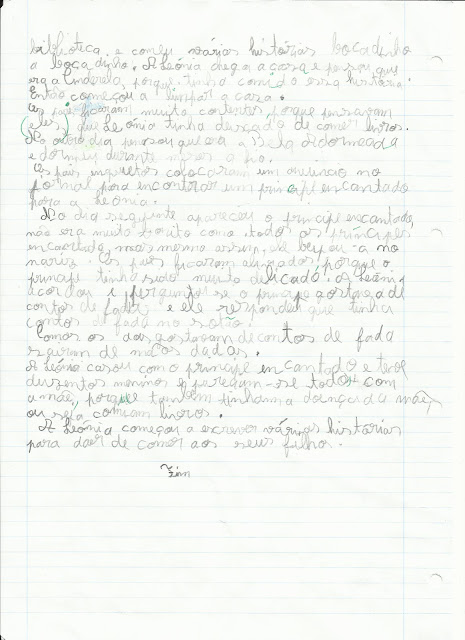 biblioteca e comeu várias histórias bocadinho
a bocadinho. A Leónia chega a casa e pensou que
era a Cinderela, porque tinha comido essa história.
Então começou a limpar a casa.
Os pais ficaram muito contentes porque pensavam
(eles) que Leónia tinha deixado de comer livros.
No outro dia pensou que era a Bela Adormecida
e dormiu durante meses a fio.
Os pais inquietos colocaram um anúncio no
jornal para encontrar um príncipe encantado
para a Leónia.
No dia seguinte apareceu o príncipe encantado,
não era muito bonito como todos os príncipes
encantados, mas mesmo assim, ele beijou-a no
nariz. Os pais ficaram porque o
príncipe tinha sido muito delicado. A Leónia
acordou e perguntou se o príncipe gostava de
contos de fada e ele respondeu que tinha
contos de fada no sotão.
Como os dois gostavam de contos de fada
sairam de mãos dadas.
A Leónia casou com o príncipe encantado e teve
duzentos meninos e pareciam-se todos com
a mãe, porque também tinham a doença da mãe,
ou seja comiam livros.
A Leónia começou a escrever várias histórias
para dar de comer aos seus filhos.
Fim